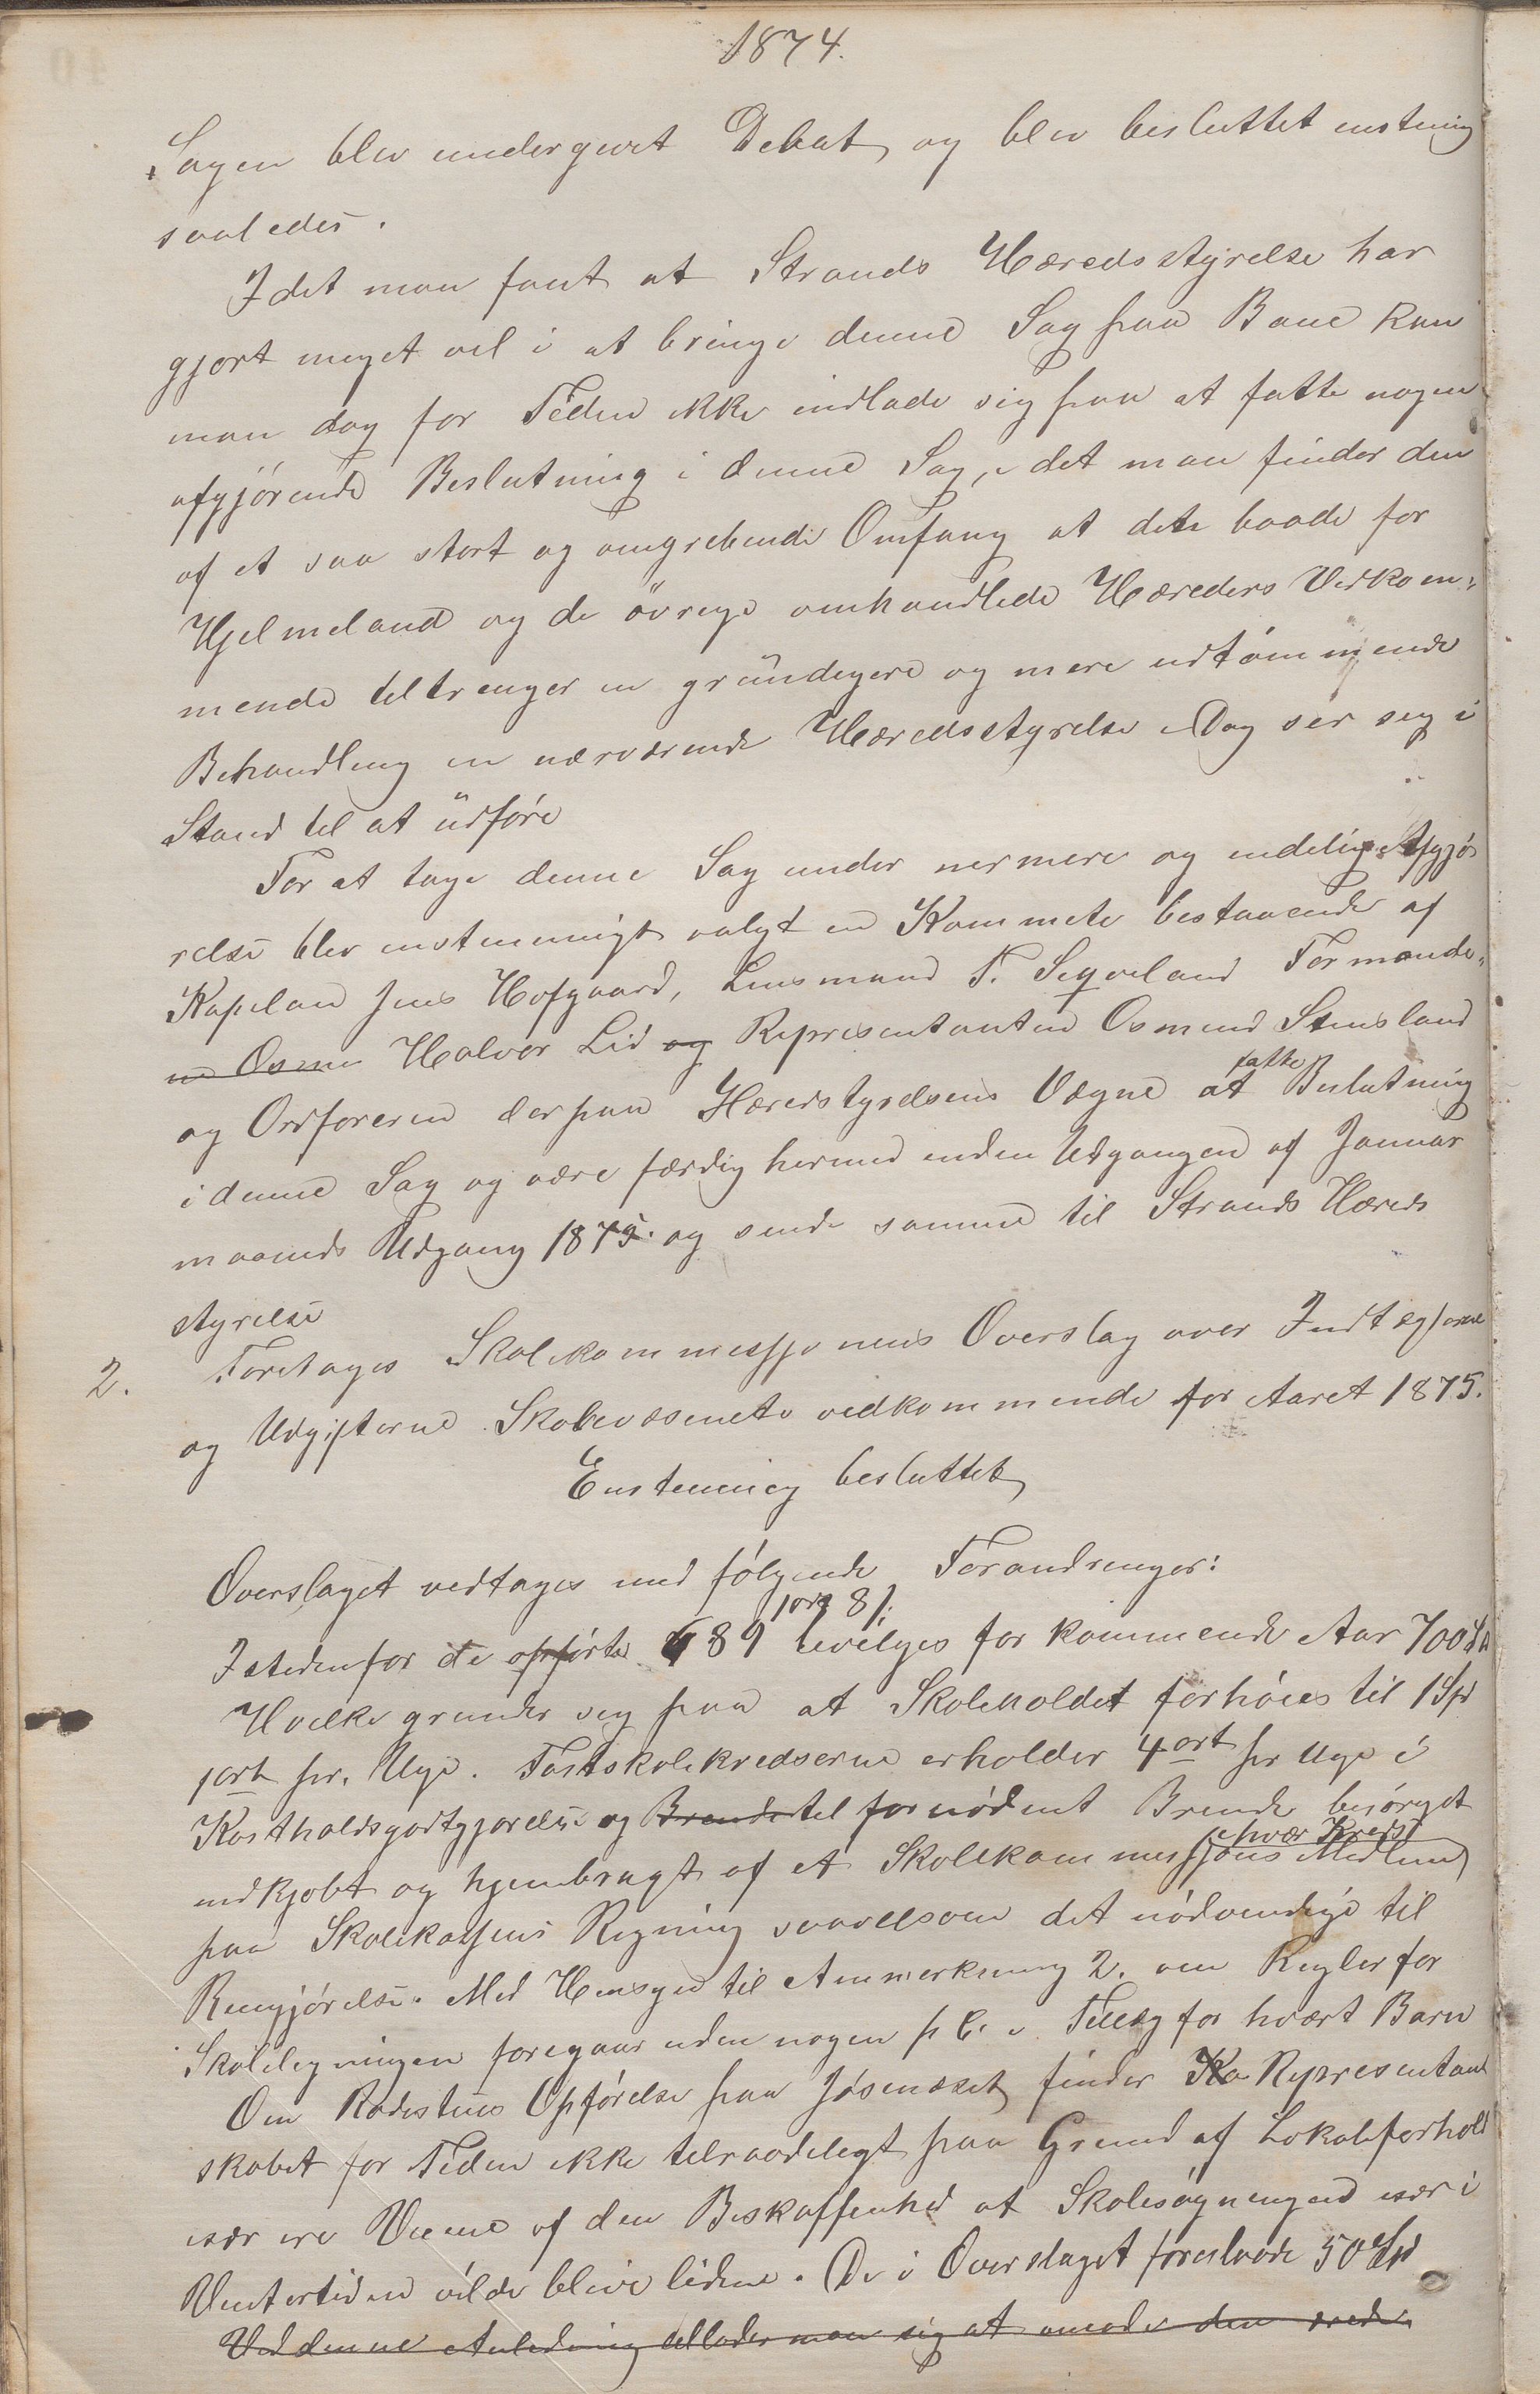 1874.
Sagen blev undergivet Debat og blev besluttet enstemig
saaledes.
Idet man fant at Strands Heredsstyrelse har
gjort meget vel i at bringe denne Sag paa Bane kan
man dog for Tiden ikke indlade sig paa at fatte nogen
afgjörende Beslutning i denne Sag, i det man finder den
af et saa stort og omgrebende Omfang at den baade for
Hjelmeland og de övrige omhandlede Hereders Vedkom-
mende tiltrenger en gründigere og mere udtömmende
Behandling en nærværende Heredsstyrelse i Dag ser seg i
Stand til at üdföre
For at tage denne Sag under nermere og endelig Afgjö
relse blev enstemmigt valgt en Kommete bestaaende af
Kapelan Jens Hofgaard, Lensmand T. Segveland Formende-
ne Osmu Halvor Lid og Representanten Osmund Stensland
og Ordforeren der paa Heredstyrelsens Vægne at fatte Beslutning
i denne Sag og være færdig hermed inden Udgangen af Januar
maaneds Udgang 1875. og sende samme til Strands Hereds
styrelse
2. Foretages Skolekommissjonens Overslag over Indtægterne
og Udgifterne Skolevæsenets vedkommende for Aaret 1875.
Enstemmig besluttet
Overslaget vedtages med fölgende Forandrenger:
Istedenfor de opförte 689 1 ort 8 s. bevelges for kommende Aar 700 Sp
Hvelke grunder seg paa at Skoleholdet forhöies til 1 Spd
1 ort pr. Uge. Fastskolekredserne erholder 4 ort pr Uge i
Kostholdsgodtgjorelse og Brende til fornödent Brende besörget
indkjobt og hjembragt af et Skolekommissjons Medlem i hver Kreds
paa Skolekassens Regning saavelsom det nödvendige til
Rengjörelse. Med Hensyn til Anmerkning 2. om Regler for
Skoleligningen foregaar uden nogen p C. i Tillæg for hvert Barn
Om Rodestues Opförelse paa Jösenæset finder Ko Representant
skabet for Tiden ikke telraadelegt paa Grund af Lokaleforhold
især ere Veiene af den Beskaffenhed at Skolesögningen især i
Ventertiden vilde blive liden. De i Overslaget foreslaaede 50 Spd
Ved denne Anledning tillader man sig at anmode den ærede